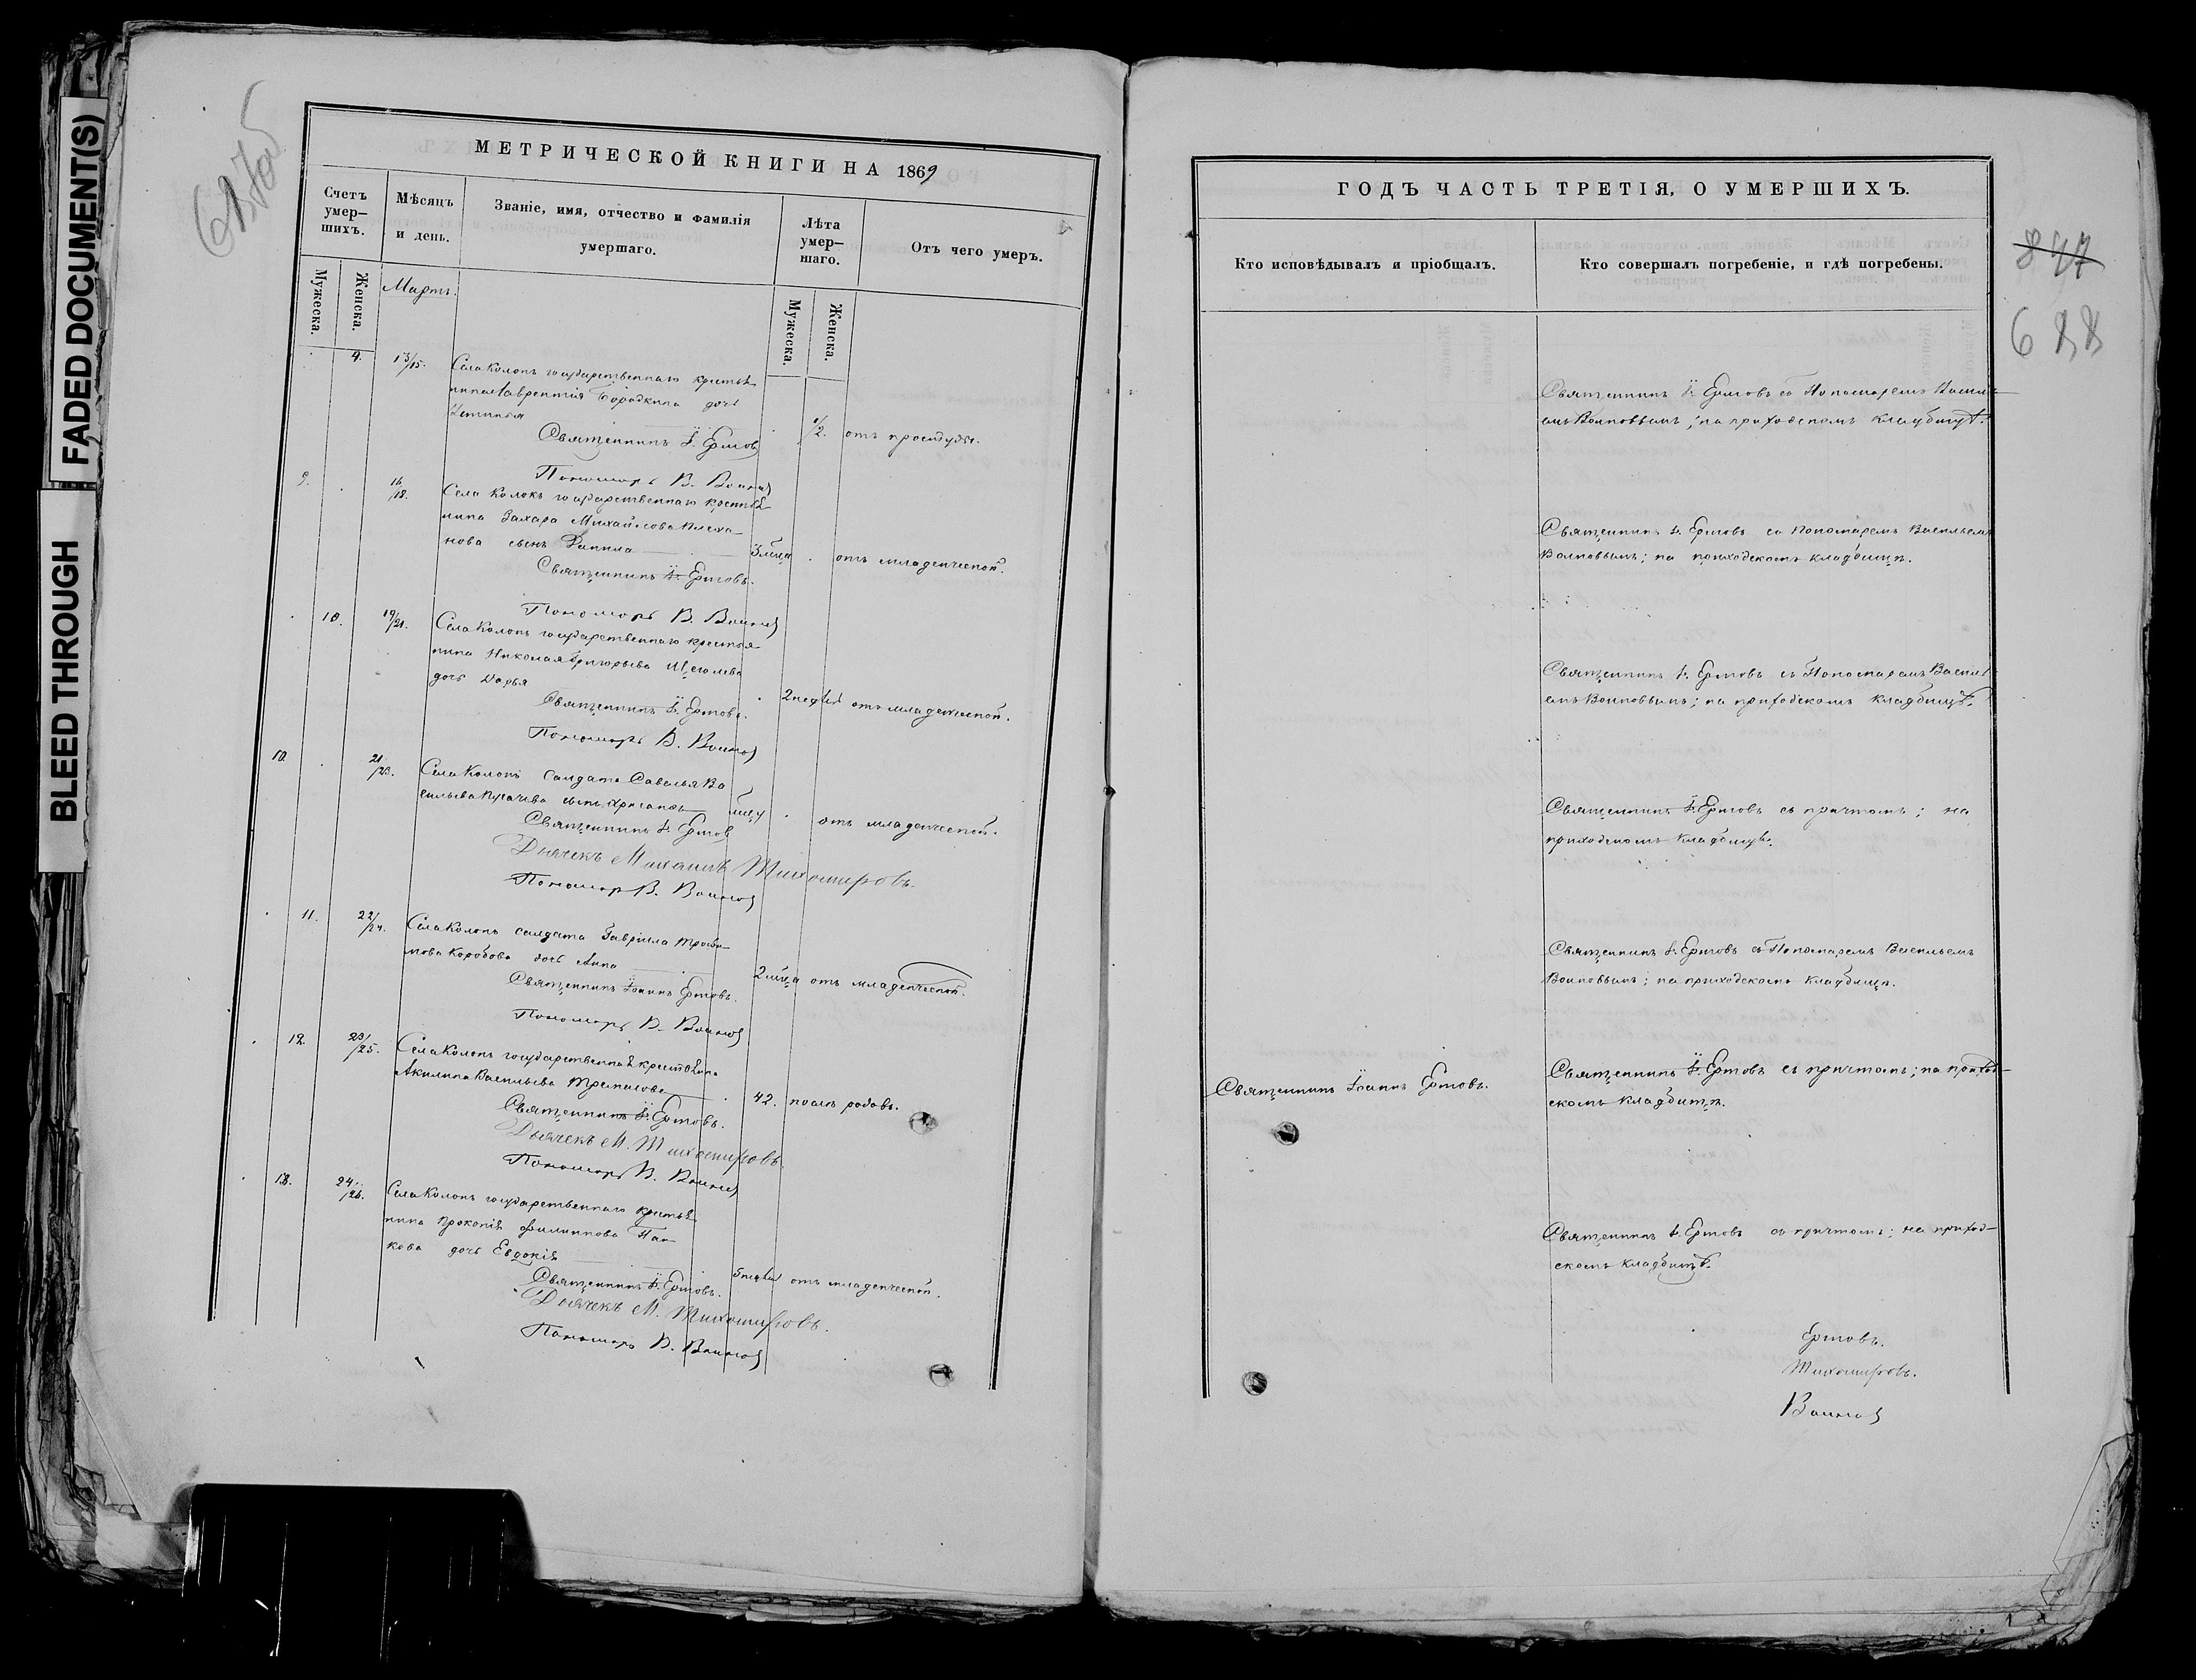 FADED DOCUMENT(S)
BLEED THROUGH
МЕТРИЧЕСКОЙ КНИГИ НА 1869
Счетъ умер-шихъ.
Мѣсяцъ и день.
Званіе, имя, отчество и фамилія умершаго.
Лѣта умер-шаго.
Отъ чего умеръ.
Мужеска.
Женска.
Мартъ.
Мужеска.
Женска.
9. 13/15. Села Колокъ государственнаго крестья-
нина Лаврентія Бородкина дочь
1/2. отъ простуды.
Священникъ І. Ертовъ
Пономарь В. Воиновъ
9. 16/18. Села Колокъ государственнаго крестья-
нина Захара Михайлова Плеха-
нова сынъ 3 мѣсца отъ младенческой.
Священникъ І. Ертовъ.
Пономарь В. Воиновъ
10. 19/21. Села Колокъ государственнаго крестья-
нина Николая Григорьева Щеголева
дочь Дарья 2 недѣли отъ младенческой.
Священникъ І. Ертовъ.
Пономарь В. Воиновъ
10. 21/23. Села Колокъ солдата Савелья Ва-
сильева сынъ отъ младенческой.
Священникъ І. Ертовъ
Дьячекъ Михаилъ Тихомировъ.
Пономарь В. Воиновъ
11. 22/24. Села Колокъ солдата Гавріила Трофи-
мова Коробова дочь Анна 2 мѣсца отъ младенческой.
Священникъ Іоаннъ Ертовъ.
Пономарь В. Воиновъ
12. 23/25. Села Колокъ государственная крестьянка
Акилина Васильева 42. послѣ родовъ.
Священникъ І. Ертовъ.
Дьячекъ М. Тихомировъ.
Пономарь В. Воиновъ
13. 24/26. Села Колокъ государственнаго крестья-
нина Прокопія Филиппова Пан-
кова дочь Евдокія 5 недѣль отъ младенческой.
Священникъ І. Ертовъ.
Дьячекъ М. Тихомировъ.
Пономарь В. Воиновъ
ГОДЪ ЧАСТЬ ТРЕТІЯ, О УМЕРШИХЪ.
847
688
Кто исповѣдывалъ и пріобщалъ.
Кто совершалъ погребеніе, и гдѣ погребены.
Священникъ І. Ертовъ съ Пономаремъ Василь-
емъ Воиновымъ; на приходскомъ кладбищѣ.
Священникъ І. Ертовъ съ Пономаремъ Васильемъ
Воиновымъ; на приходскомъ кладбищѣ.
Священникъ І. Ертовъ съ Пономаремъ Василь-
емъ Воиновымъ; на приходскомъ кладбищѣ.
Священникъ І. Ертовъ съ причтомъ; на
приходскомъ кладбищѣ.
Священникъ І. Ертовъ съ Пономаремъ Васильемъ
Воиновымъ; на приходскомъ кладбищѣ.
Священникъ Іоаннъ Ертовъ.
Священникъ І. Ертовъ съ причтомъ; на приход-
скомъ кладбищѣ.
Священникъ І. Ертовъ съ причтомъ; на приход-
скомъ кладбищѣ.
Ертовъ.
Тихомировъ.
Воиновъ